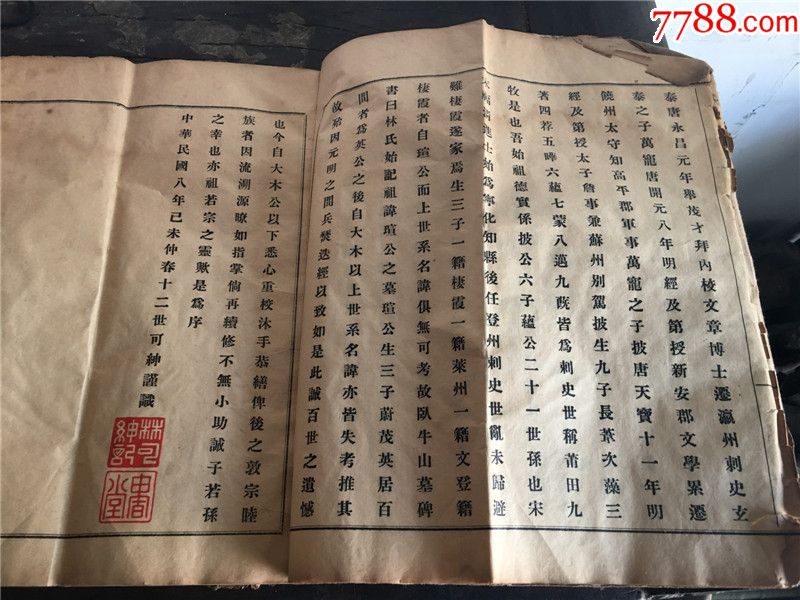 7788.com
泰唐永昌元年舉茂才拜內校文章博士遷瀛州刺史玄
泰之子萬寵唐開元八年明經及第授新安郡文學累遷
饒州太守知高平郡軍事萬寵之子披唐天寶十一年明
經及第授太子詹事兼蘇州別駕披生九子長葦次藻三
著四荐五曄六蘊七蒙八邁九蔇皆爲刺史世稱莆田九
牧是也吾始祖德實係披公六子蘊公二十一世孫也宋
進士始爲寧化知縣後任登州刺史世亂未歸避
難棲霞遂家焉生三子一籍棲霞一籍萊州一籍文登籍
棲霞者自瑄公而上世系名諱俱無可考故臥牛山墓碑
書曰林氏始記祖諱瑄公之墓瑄公生三子蔚茂英居百
間者爲英公之後自大木以上世系名諱亦皆失考推其
故殆因元明之間兵燹迭經以致如是此誠百世之遺憾
也今自大木公以下悉心重校沐手恭繕俾後之敦宗睦
族者因流溯源瞭如指掌倘再續修不無小助誠子若孫
之幸也亦祖若宗之靈歟是爲序
中華民國八年己未仲春十二世可紳謹識
林可紳記